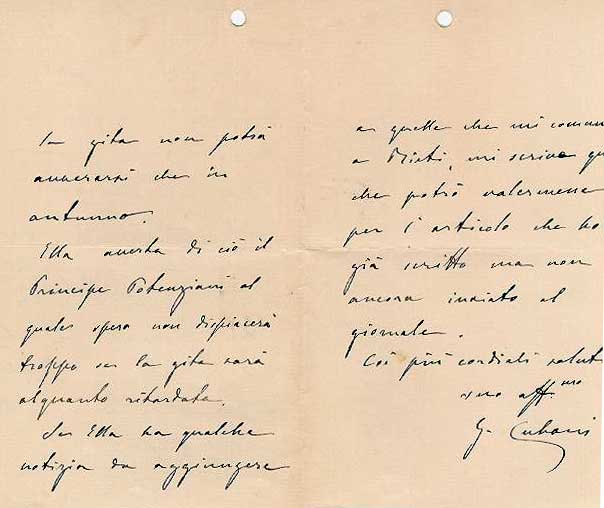 la gita non potrà
avverarsi che in
autunno.
Ella avverta di ciò il
Principe Potenziani al
quale spero non dispiacerà
troppo se la gita sarà
alquanto ritardata.
Se Ella ha qualche
notizia da aggiungere
a quelle che mi comun
a Rieti, mi scriva
che potrò valermene
per l'articolo che ho
già scritto ma non
ancora inviato al
giornale.
Coi più cordiali salut
suo aff.mo
G. Cuboni